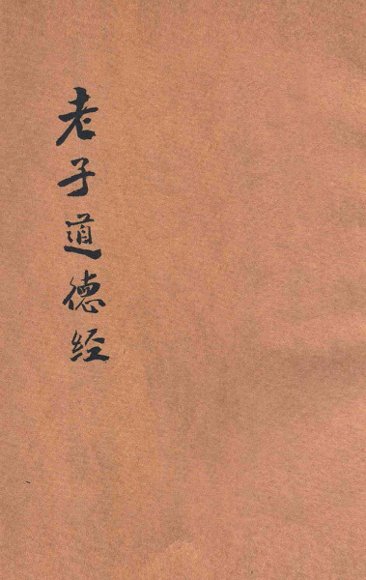 老子道德经